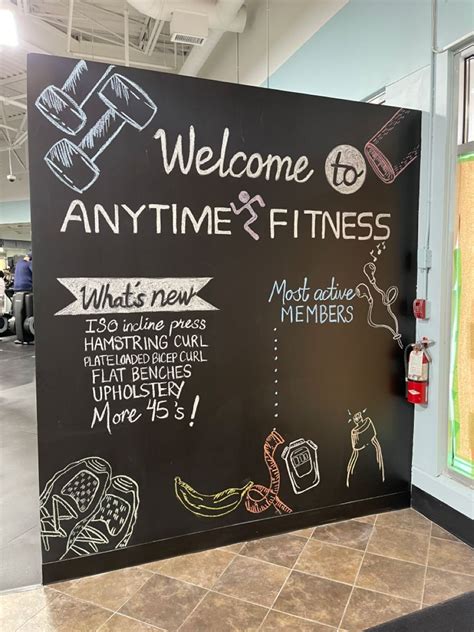 Welcome to
ANYTIME FITNESS
What's new
ISO incline press
HAMSTRING CURL
PLATE LOADED BICEP CURL
FLAT BENCHES
UPHOLSTERY
More 45's!
Most active
MEMBERS